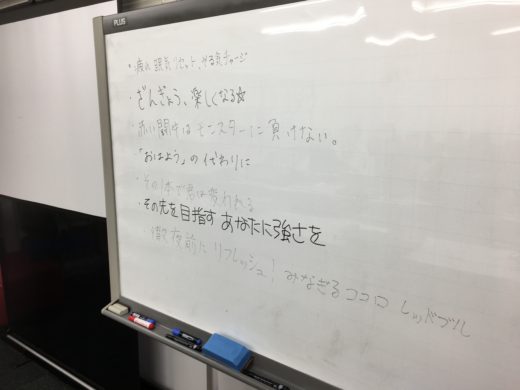 PLUS
・疲れ 眠気リセット、やる気チャージ
・ざんぎょう、楽しくなる☆
・赤い闘牛はモンスターに負けない。
・「おはよう」の代わりに
・その1本で君は変われる
・その先を目指す あなたに強さを
・徹夜前に リフレッシュ! みなぎるココロ レッドブル